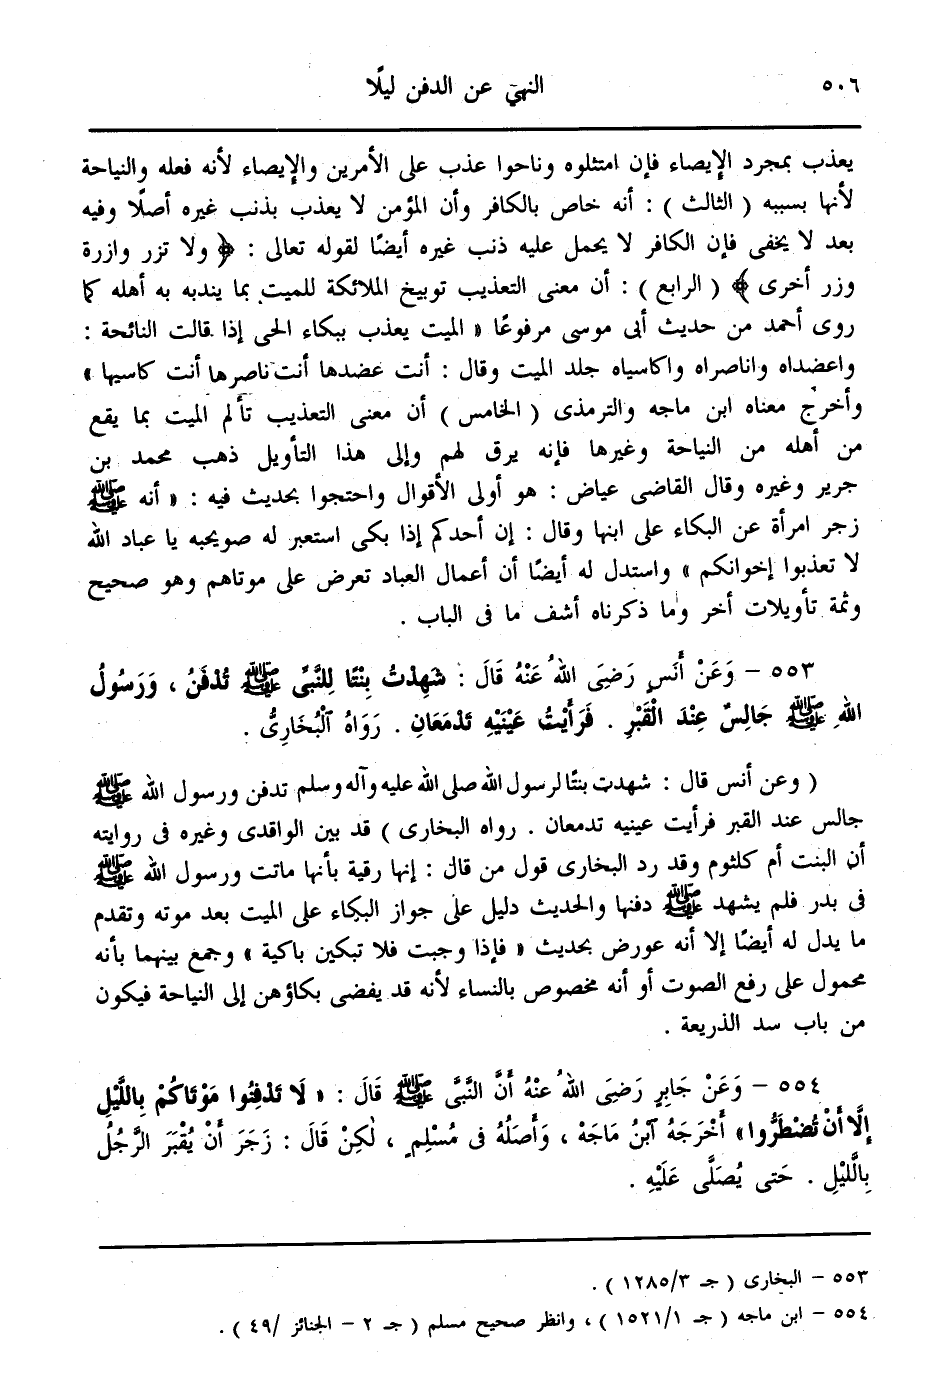 ٥٠٦
النهي عن الدفن ليلًا
يعذب بمجرد الإيصاء فإن امتثلوه وناحوا عذب على الأمرين والإيصاء لأنه فعله والنياحة
لأنها بسببه ( الثالث ) : أنه خاص بالكافر وأن المؤمن لا يعذب بذنب غيره أصلًا وفيه
بعد لا يخفى فإن الكافر لا يحمل عليه ذنب غيره أيضًا لقوله تعالى : ﴿ ولا تزر وازرة
وزر أخرى ﴾ ( الرابع ) : أن معنى التعذيب توبيخ الملائكة للميت بما يندبه به أهله كما
روى أحمد من حديث أبى موسى مرفوعًا « الميت يعذب ببكاء الحى إذا قالت النائحة :
واعضداه واناصراه واكاسياه جلد الميت وقال : أنت عضدها أنت ناصرها أنت كاسيها »
وأخرج معناه ابن ماجه والترمذى ( الخامس ) أن معنى التعذيب تألم الميت بما يقع
من أهله من النياحة وغيرها فإنه يرق لهم وإلى هذا التأويل ذهب محمد بن
جرير وغيره وقال القاضى عياض : هو أولى الأقوال واحتجوا بحديث فيه : « أنه ﷺ
زجر امرأة عن البكاء على ابنها وقال : إن أحدكم إذا بكى استعبر له صويحبه يا عباد الله
لا تعذبوا إخوانكم » واستدل له أيضًا أن أعمال العباد تعرض على موتاهم وهو صحيح
وثمة تأويلات أخر وما ذكرناه أشف ما فى الباب .
٥٥٣ – وَعَنْ أَنَسٍ رَضِىَ اللهُ عَنْهُ قَالَ : شَهِدْتُ بِنْتًا لِلنَّبِىِّ ﷺ تُدْفَنُ ، وَرَسُولُ
اللهِ ﷺ جَالِسٌ عِنْدَ الْقَبْرِ . فَرَأَيْتُ عَيْنَيْهِ تَدْمَعَانِ . رَوَاهُ ٱلْبُخَارِىُّ .
( وعن أنس قال : شهدت بنتًا لرسول الله صلى الله عليه وآله وسلم تدفن ورسول الله ﷺ
جالس عند القبر فرأيت عينيه تدمعان . رواه البخارى ) قد بين الواقدى وغيره فى روايته
أن البنت أم كلثوم وقد رد البخارى قول من قال : إنها رقية بأنها ماتت ورسول الله ﷺ
فى بدر فلم يشهد ﷺ دفنها والحديث دليل على جواز البكاء على الميت بعد موته وتقدم
ما يدل له أيضًا إلا أنه عورض بحديث « فإذا وجبت فلا تبكين باكية » وجمع بينهما بأنه
محمول على رفع الصوت أو أنه مخصوص بالنساء لأنه قد يفضى بكاؤهن إلى النياحة فيكون
من باب سد الذريعة .
٥٥٤ – وَعَنْ جَابِرٍ رَضِىَ اللهُ عَنْهُ أَنَّ النَّبِىَّ ﷺ قَالَ : « لَا تَدْفِنُوا مَوْتَاكُمْ بِاللَّيْلِ
إِلَّا أَنْ تُضْطَرُّوا » أَخْرَجَهُ ٱبْنُ مَاجَهْ ، وَأَصْلُهُ فى مُسْلِمٍ ، لٰكِنْ قَالَ : زَجَرَ أَنْ يُقْبَرَ الرَّجُلُ
بِالَّليْلِ . حَتى يُصَلَّى عَلَيْهِ .
٥٥٣ – البخارى ( جـ ١٢٨٥/٣ ) .
٥٥٤ – ابن ماجه ( جـ ١٥٢١/١ ) ، وانظر صحيح مسلم ( جـ ٢ – الجنائز /٤٩ ) .